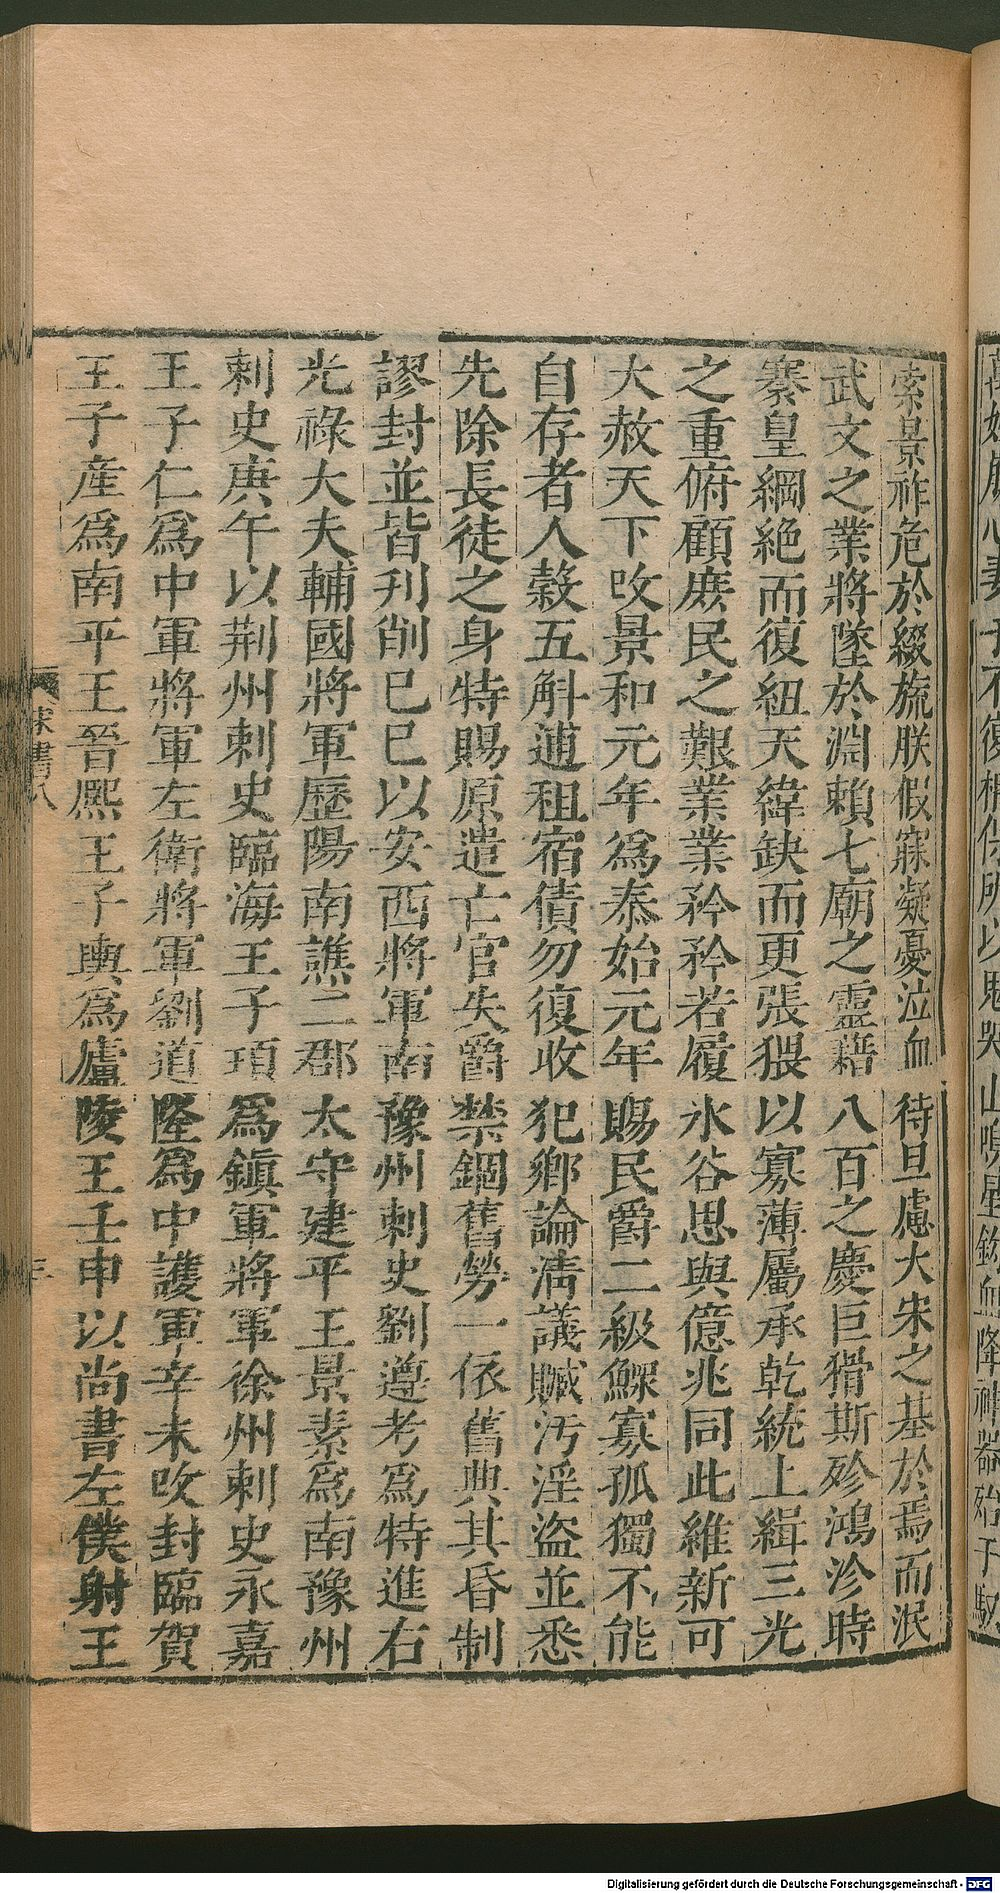 索景祚危於綴旒朕假寐凝憂泣血待旦慮大宋之基於焉而泯
武文之業將墜於淵賴七廟之靈藉八百之慶巨猾斯殄鴻沴時
褰皇綱絕而復紐天緯缺而更張猥以寡薄屬承乾統上緝三光
之重俯顧庶民之艱業業矜矜若履氷谷思與億兆同此維新可
大赦天下攺景和元年為泰始元年賜民爵二級鰥寡孤獨不能
自存者人穀五斛逋租宿債勿復收犯鄉論淸議贓汚淫盜並悉
先除長徒之身特賜原遣亡官失爵禁錮舊勞一依舊典其昏制
謬封並皆刋削已巳以安西將軍南豫州刺史劉遵考爲特進右
光祿大夫輔國將軍歷陽南譙二郡太守建平王景素爲南豫州
刺史庚午以荆州刺史臨海王子頊爲鎭軍將軍徐州刺史永嘉
王子仁爲中軍將軍左衛將軍劉道隆爲中護軍辛未攺封臨賀
王子產爲南平王晉熙王子輿爲廬陵王壬申以尚書左僕射王
宋書八
三
Digitalisierung gefördert durch die Deutsche Forschungsgemeinschaft - DFG